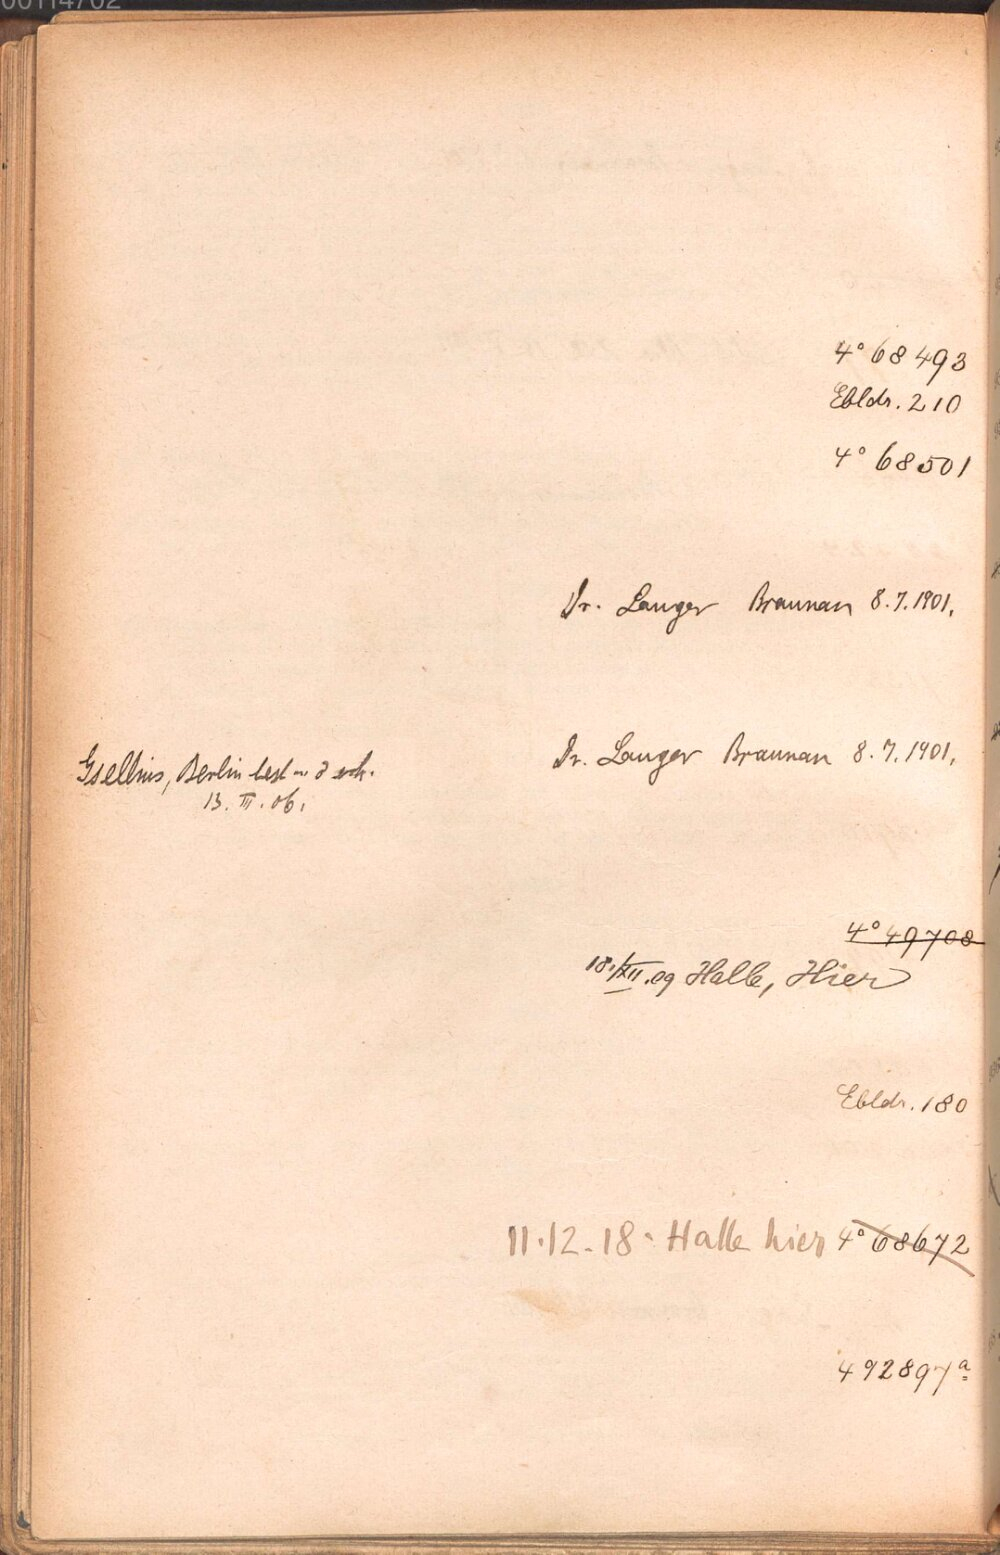 00114702
4° 68493
Ebldr. 210
4° 68501
Dr. Langer Braunau 8.7.1901.
Dr. Langer Braunau 8.7.1901.
Gsellius, Berlin best
13. III. 06.
4° 49708
18./XII.09 Halle, Hier
Ebldr. 180
11.12.18. Halle hier 4° 68672
492897a